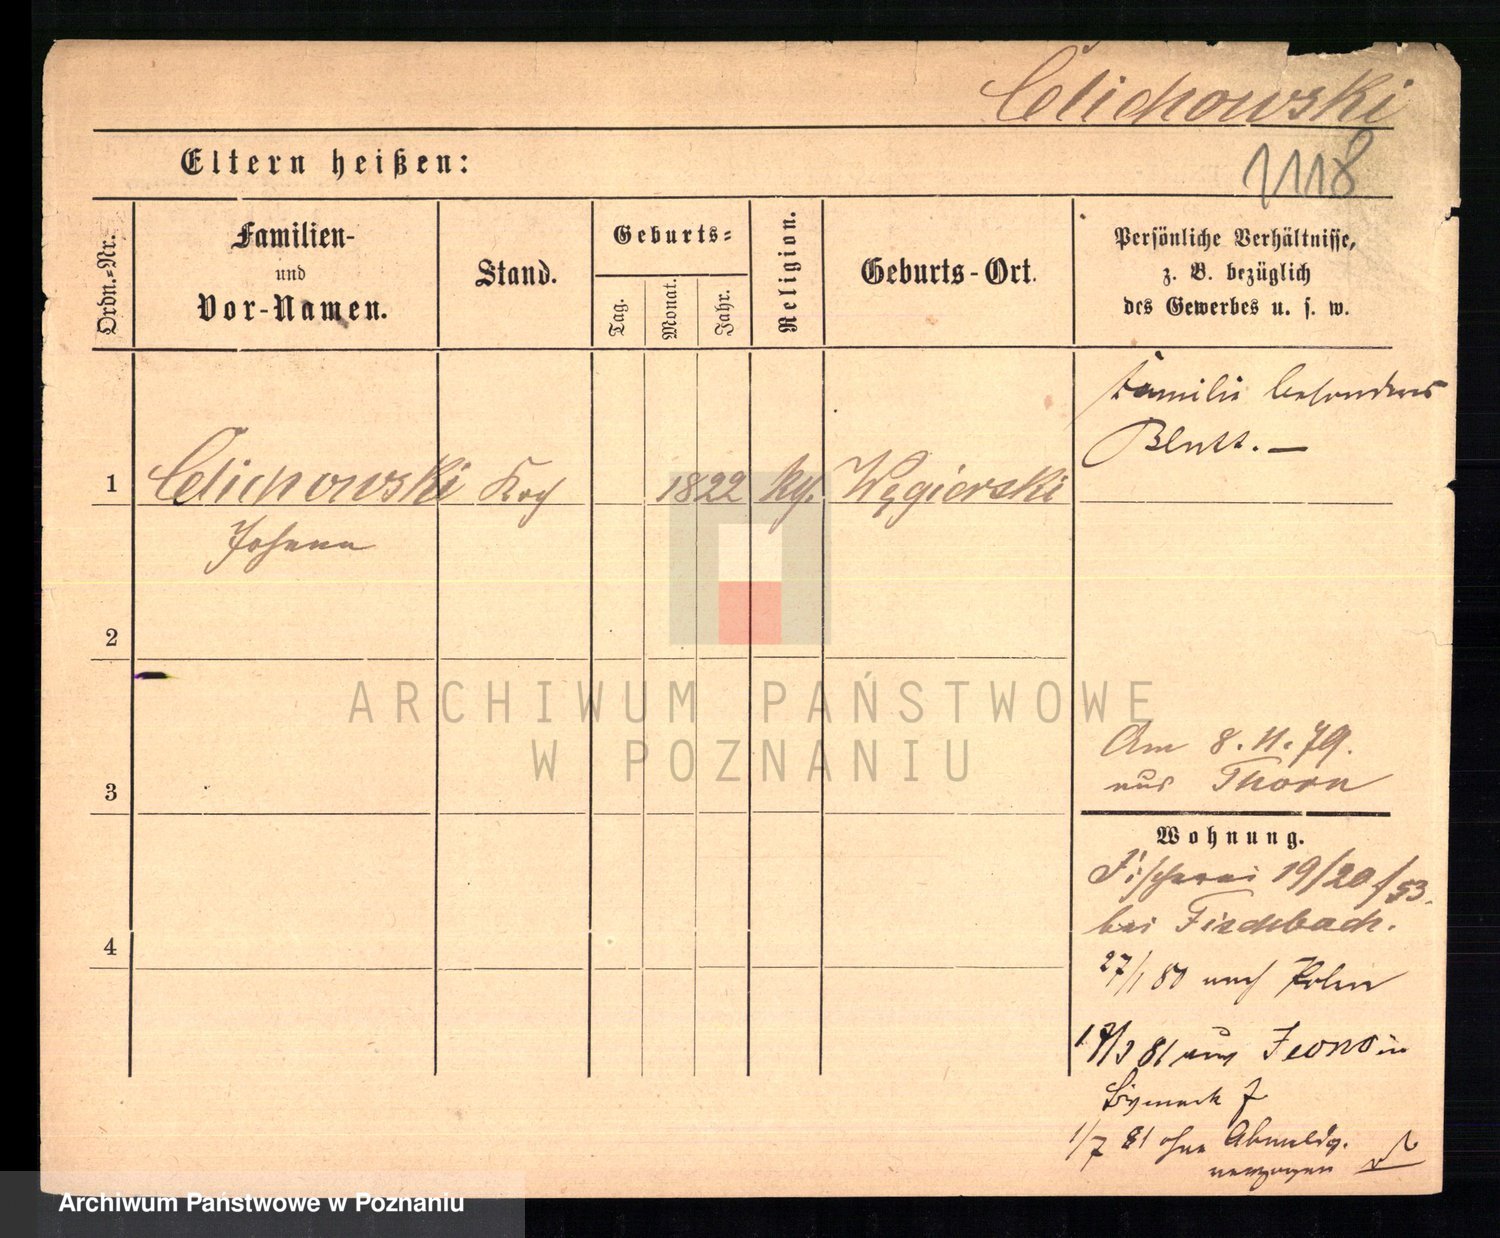 Celichowski
1118
Eltern heißen:
Ordn.-Nr.
Familien-
und
Vor-Namen.
Stand.
Geburts-
Tag.
Monat.
Jahr.
Religion.
Geburts-Ort.
Persönliche Verhältnisse,
z. B. bezüglich
des Gewerbes u. s. w.
Familie besonderes
Blatt. —
1
Celichowski
Koch
1822
Węgierski
Johann
2
3
4
Am 8.11.79.
aus Thorn
Wohnung.
Fischerei 19/20 / 53.
bei Fischbach.
27/1 80 nach Polen
81 aus
1/7 81 ohne Abmeldg.
verzogen
ARCHIWUM PAŃSTWOWE
W POZNANIU
Archiwum Państwowe w Poznaniu